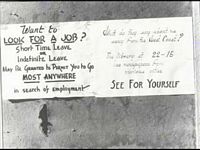 Want to
LOOK FOR A JOB?
Short Time Leave
or
Indefinite Leave
May Be Granted to Permit You to Go
MOST ANYWHERE
in search of employment
What do they say about us
away from the West Coast?
The library at 22-16
has newspapers from
various cities
SEE FOR YOURSELF